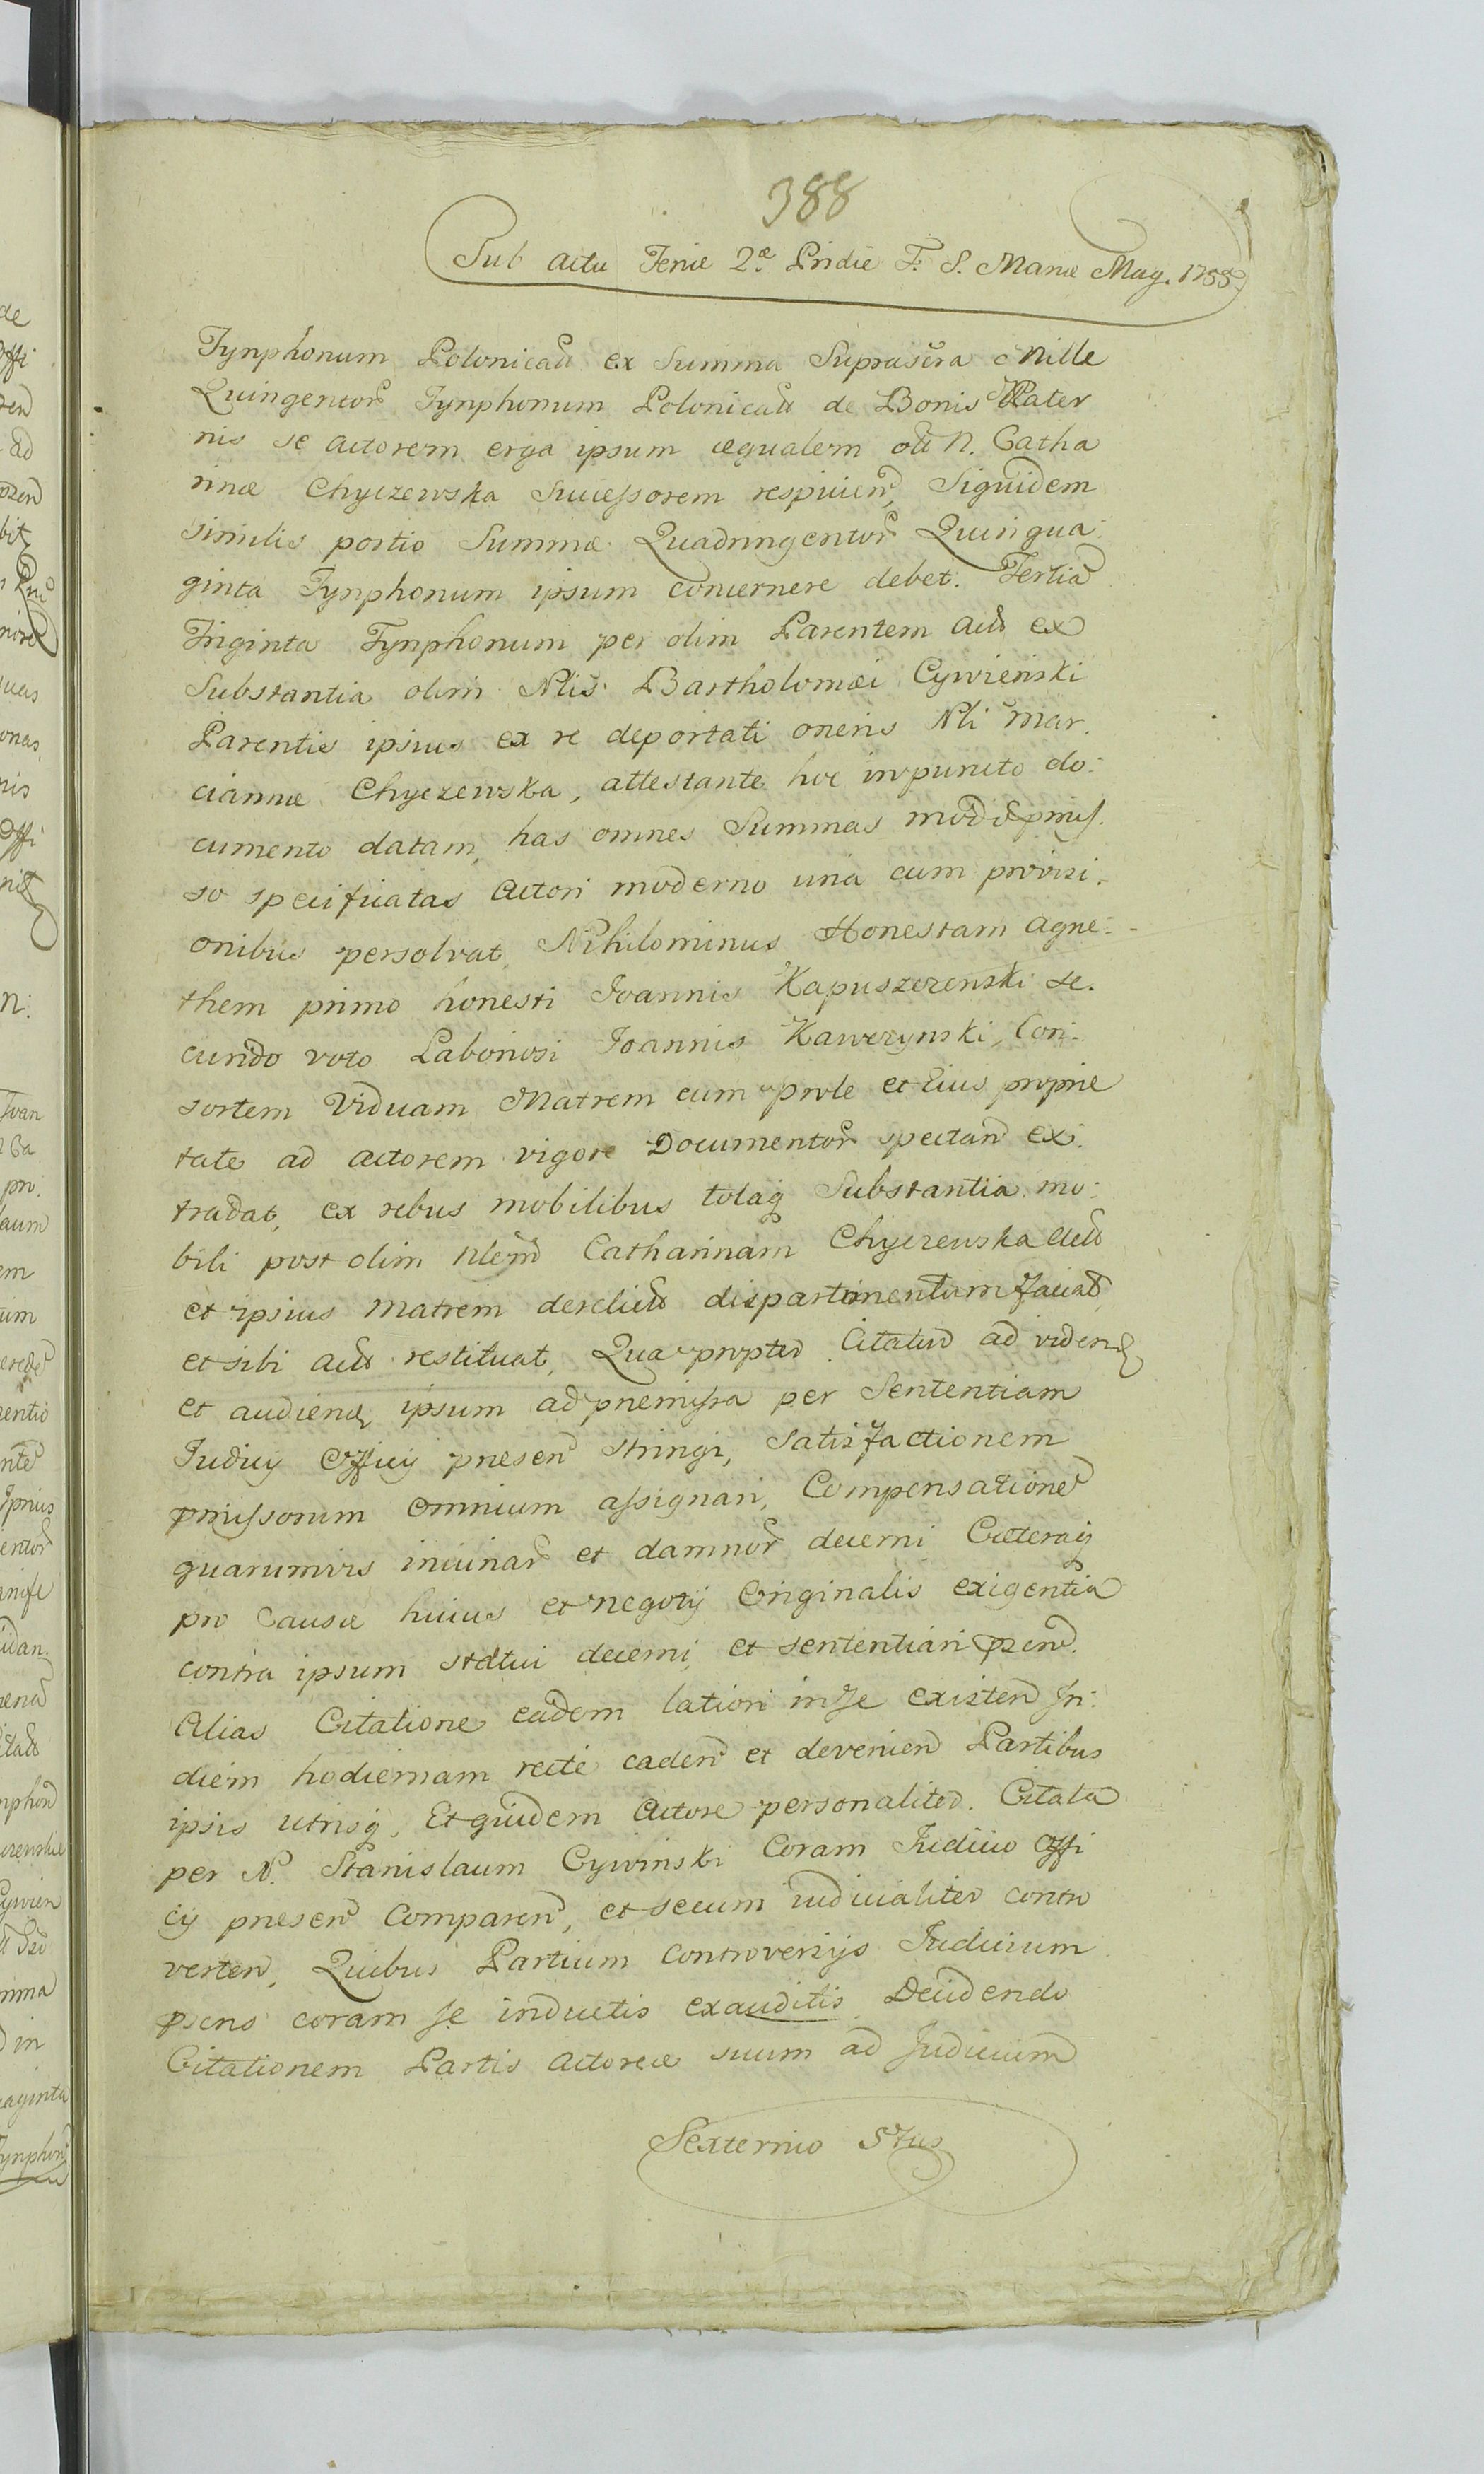 388
Sub actu Feriæ 2æ Pridie F. S. Mariæ Mag. 1755
Tynphonum Polonical ex Summa Suprascra Mille
Quingentor Tynphonum Polonical de Bonis Mater
nis se actorem erga ipsum æqualem N. Catha
rinæ Chyczewska Successorem respicien, Siquidem
similis portio Summæ Quadringentor Quinqua:
ginta Tynphonum ipsum concernere debet. Tertia
Triginta Tynphonum per olim Parentem ex
Substantia olim Nlis Bartholomæi Cywieński
Parentis ipsius ex re deportati oneris Nli Mar.
ciannæ Chyczewska, attestante hoc in puncto do:
cumento datam, has omnes Summas modo
so specificatas Actori moderno una cum provisi:
onibus persolvat, Nihilominus Honestam Agne:
them primo honesti Joannis Kapuszczenski se.
cundo voto Laboriosi Joannis Kawczynski, Con:
sortem Viduam Matrem cum prole et Eius proprie
tate ad actorem vigore Documentor spectan ex:
tradat, ex rebus mobilibus totaq Substantia mo:
bili post olim Nlem Catharinam Chyczewska
et ipsius Matrem derelict dispartimentum faciat
et sibi restituat, Qua propter Citatur ad viden
et audien ipsum ad præmissa per Sententiam
Iudicij Officij præsen stringi, Satisfactionem
pmissorum omnium assignari, Compensatione
quarumvis iniuriar et damnor decerni Cæteraq
pro Causæ huius et negotij Originalis exigentia
contra ipsum statui decerni et sententiari pzen.
Alias Citatione eadem latiori in se existen In:
diem hodiernam recte caden et devenien Partibus
ipsis utrisq, Et quidem Actore personaliter. Citata
per N. Stanislaum Cywinski Coram Iudicio Offi
cij præsen Comparen, et secum iudicialiter contro
verten, Quibus Partium Controversijs Iudicium
psens coram se inductis exauditis Decidendo
Citationem Partis Actoreæ suum ad Iudicium
Sexternio 57us